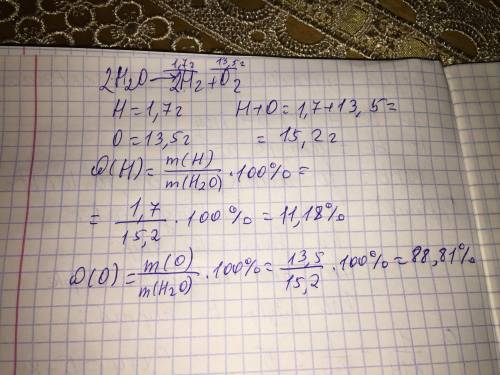 1,7г 13,5г
2H₂O → 2H₂ + O₂
H = 1,7г H+O = 1,7+13,5=
O = 13,5г = 15,2г
ω(H) = m(H)/m(H₂O) · 100% =
= 1,7/15,2 · 100% = 11,18%
ω(O) = m(O)/m(H₂O) · 100% = 13,5/15,2 · 100% = 88,81%